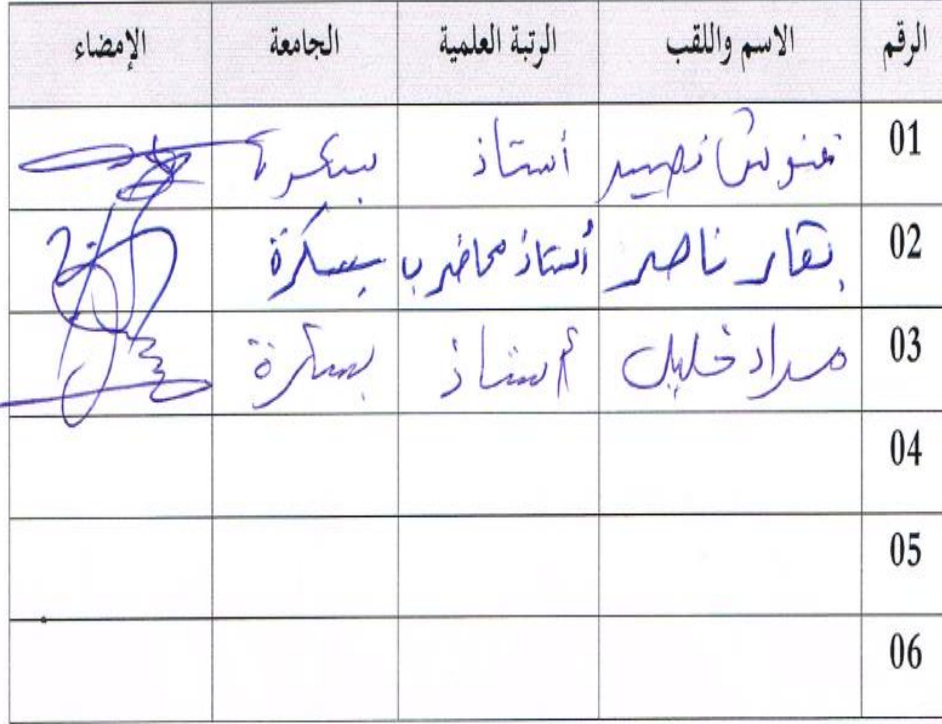 الرقم الاسم واللقب الرتبة العلمية الجامعة الإمضاء
01 قنوش نصير أستاذ بسكرة
02 بقار ناصر أستاذ محاضر ب بسكرة
03 مراد خليل أستاذ بسكرة
04
05
06